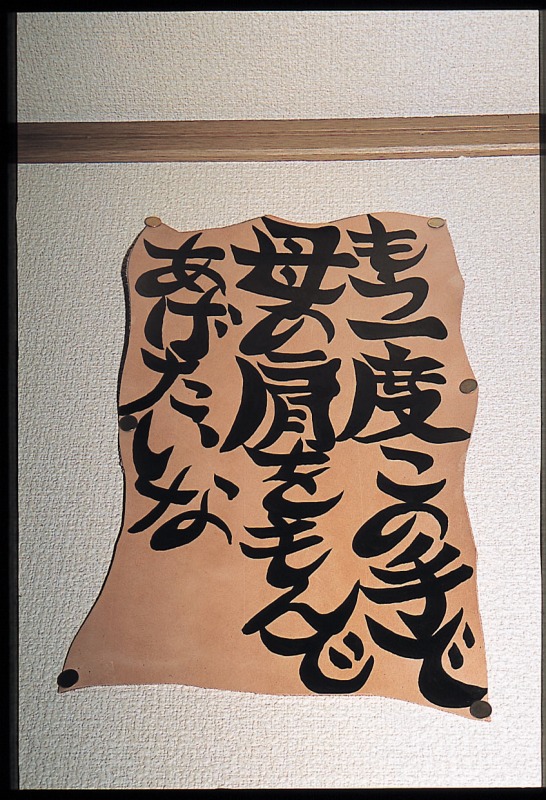 もう一度この手で
母の肩をもんで
あげたいな